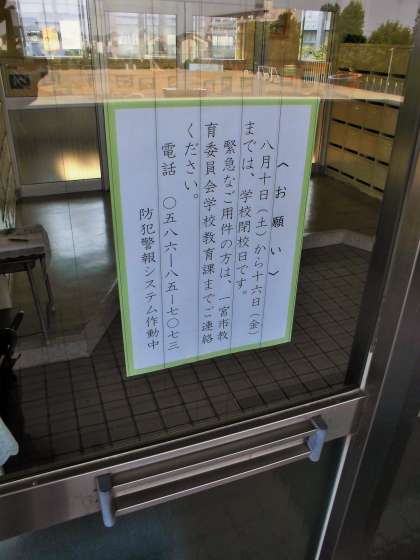 〈お願い〉
八月十日（土）から十六日（金）
までは、学校閉校日です。
緊急なご用件の方は、一宮市教
育委員会学校教育課までご連絡
ください。
電話　〇五八六ー八五ー七〇七三
防犯警報システム作動中